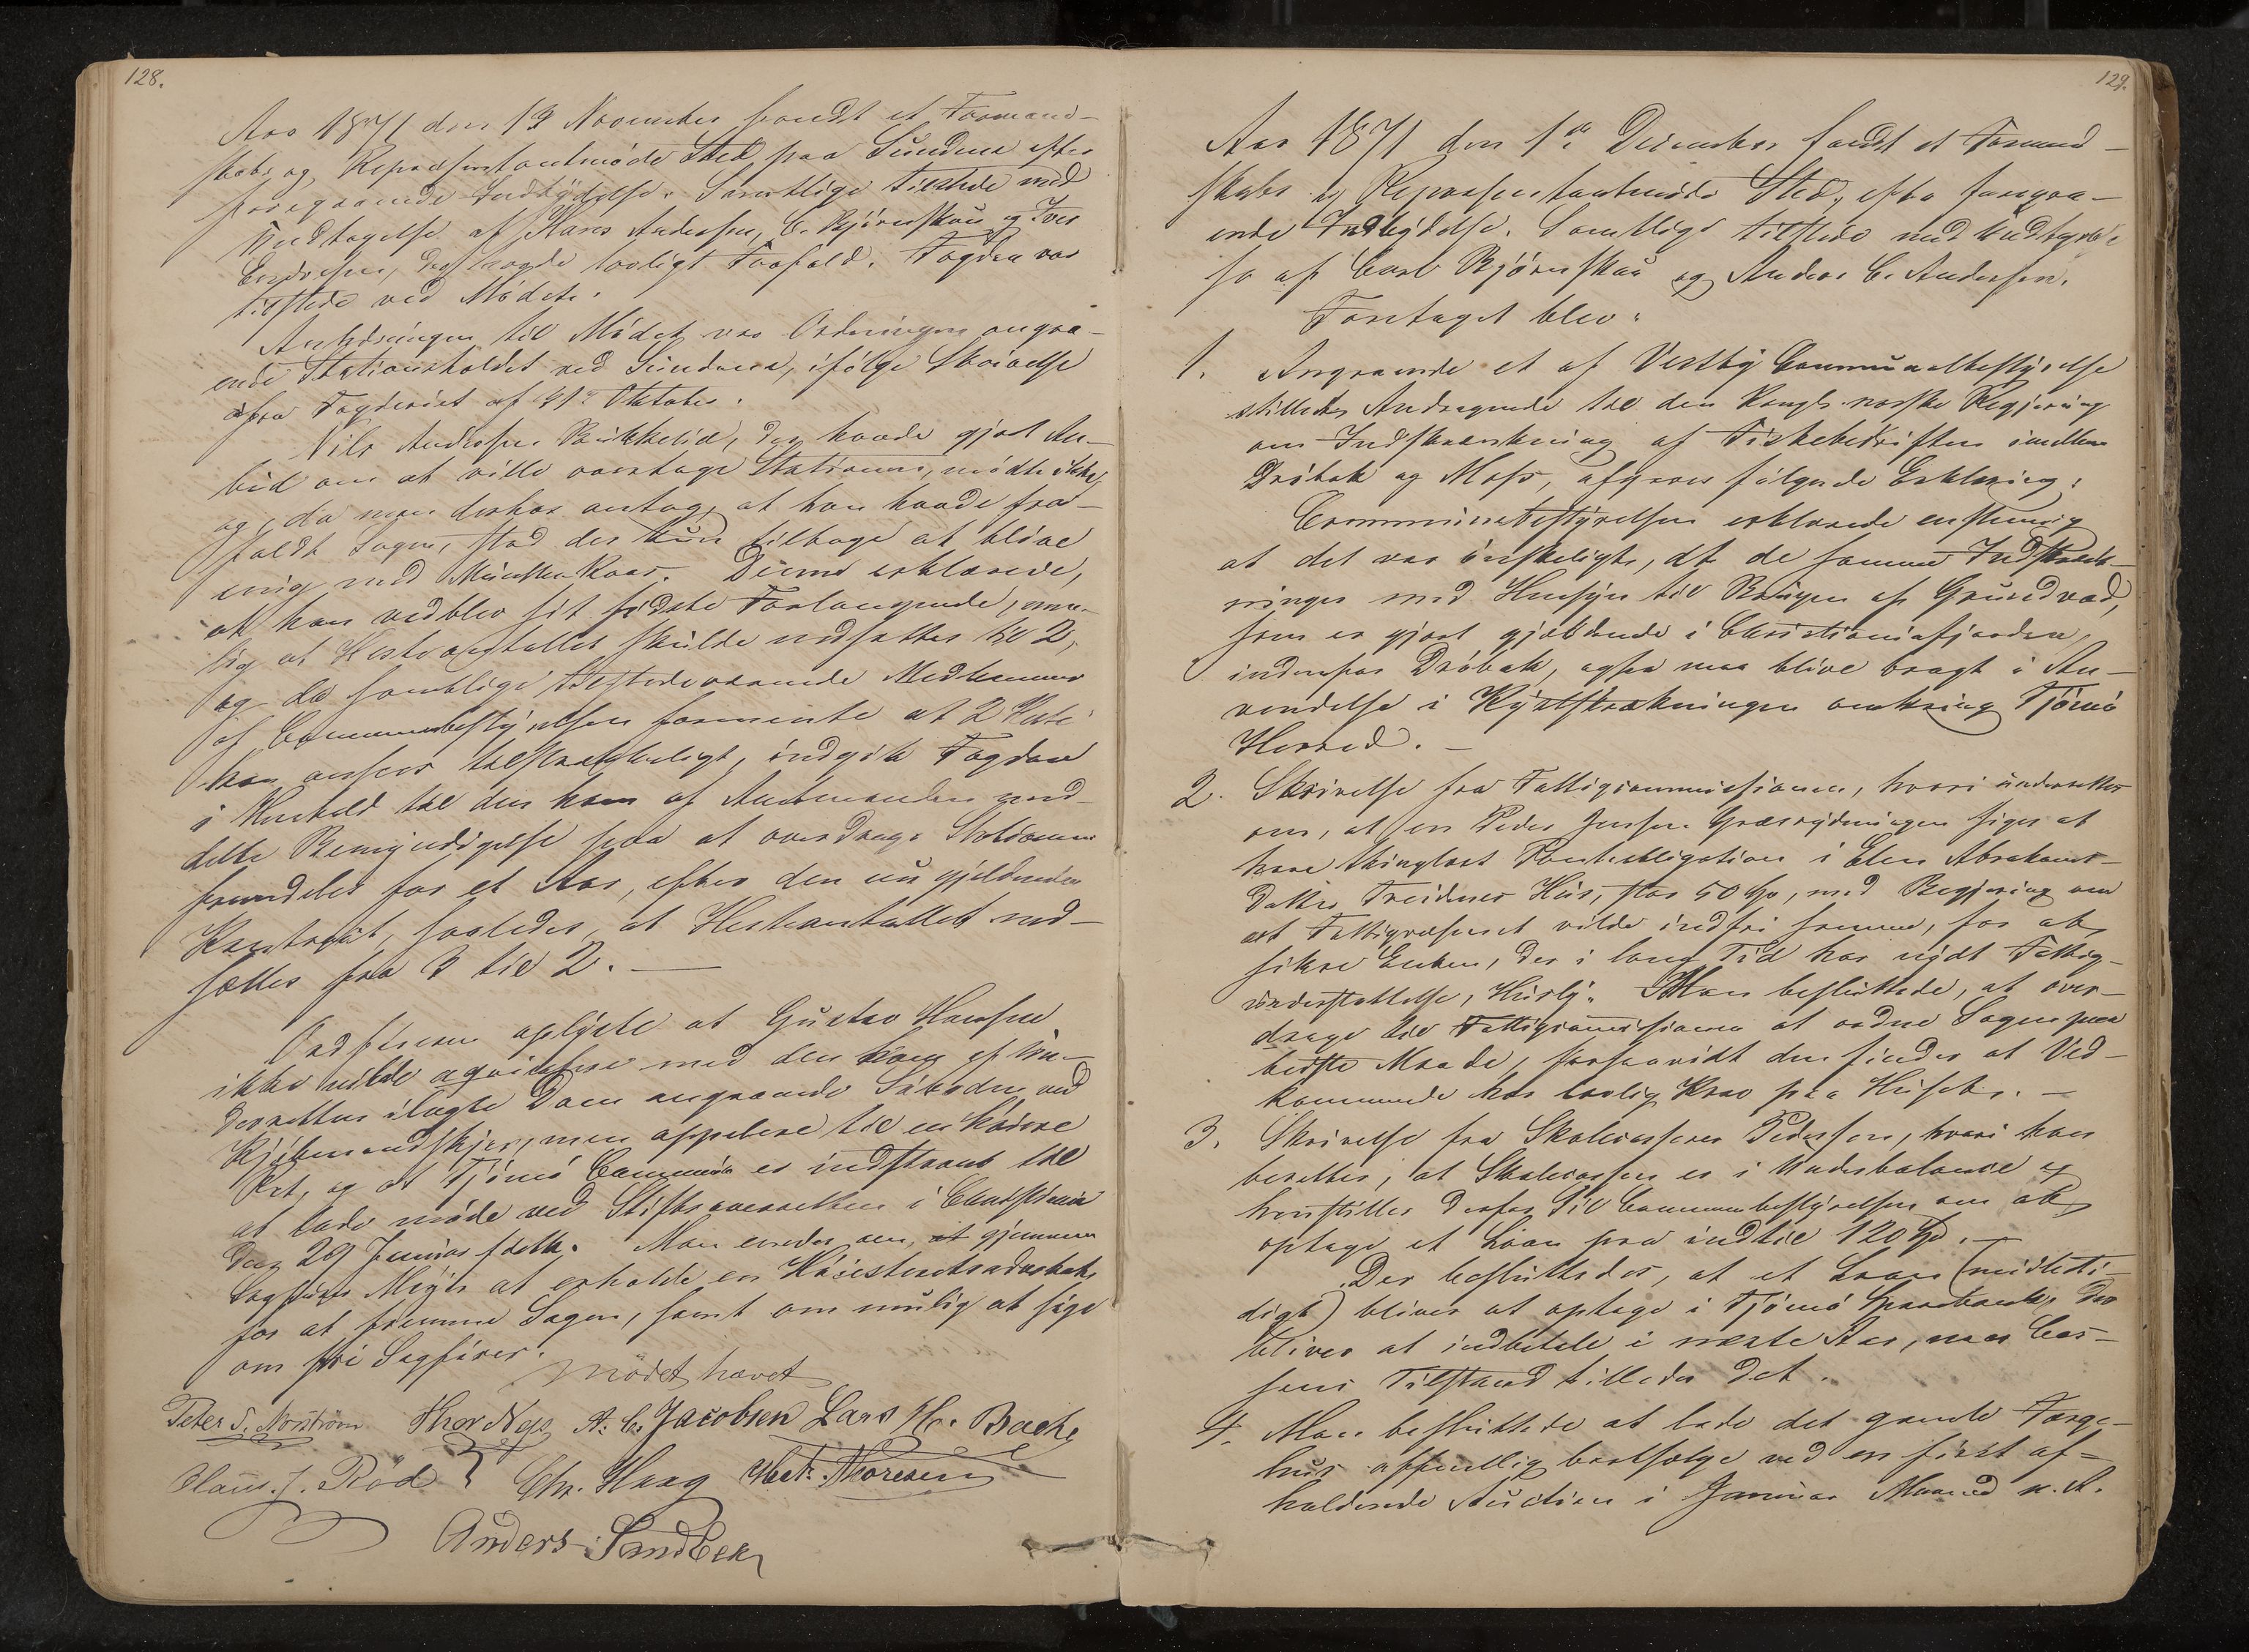 128.
Aar 1871 den 13 November fandt et Formand-
skabs og Repræsentantmøde Sted paa Sundene efter
foregaaende Indbydelse. Samtlige tilstede med
Undtagelse af Hans Andersen, C. Bjørnskau og Iver
Endresen, der havde lovligt Forfald. Fogden var
tilstede ved Mødet.
Anledningen til Mødet var Ordningen angaa-
ende Stationsholdet ved Sundene, ifølge Skrivelse
fra Fogderiet af 31te Oktober.
Nils Andersen, der havde gjort An-
bud om at ville overtage Stationen, mødte ikke,
og da man derhos antog, at han havde fra-
faldt Sagen, stod der kun tilbage at blive
enig med Denne erklærede,
at han vedblev sit sidste Forlangende, nem-
lig at Hesteantallet skulde nedsættes til 2,
og da samtlige tilstedeværende Medlemmer
af Communebestyrelsen formente at 2 Heste
kan ansees tilstrækkeligt, indgik Fogden
i Henhold til den ham af Amtmanden med-
delte Bemyndigelse paa at overdrage Stationen
fremdeles for et Aar, efter den nu gjældende
Kontrakt, saaledes, at Hesteantallet ned-
sættes fra 3 til 2. —
Ordføreren oplyste at Gustav Hansen
ikke vilde aqviescere med den ham af Un-
derretten ilagte Dom angaaende Søboden ved
Kjøbmandskjær, men appelere til en høiere
Ret, og at Tjømø Commune er indstevnt til
at lade møde ved Stiftsoverretten i Christiania
den 29 Januar førstk. Man enedes om, at gjennem
Sagfører at erholde en Høiesteretsadvokat
for at fremme Sagen, samt om mulig at søge
om fri Sagfører.
Mødet hævet
Peter S. Norstrøm Thor Næs A. C. Jacobsen Lars Hr. Bache
Claus J. Rød Chr. Haag Math. Thoresen
Anders Sandbek
129.
Aar 1871 den 1ste December fandt et Formand-
skabs og Repræsentantmøde Sted, efter foregaa-
ende Indbydelse. Samtlige tilstede med Undtagel-
se af Carl Bjørnskau og Anders C. Andersen.
Foretaget blev:
1. Angaaende et af Vestby Communalbestyrelse
stillede Andragende til den Kongl. norske Regjering
om Indskrænkning af Fiskebedriften imellem
Drøbak og Moss, afgaves følgende Erklæring:
Communebestyrelsen erklærede enstemmig
at det var ønskeligt, at de samme Indskrænk-
ninger med Hensyn til Brugen af Grundvad,
som er gjort gjældende i Christianiafjorden,
indenfor Drøbak, ogsaa maa blive bragt i An-
vendelse i Kyststrækningen omkring Tjømø
Herred. —
2. Skrivelse fra Fattigcommissionen, hvori underrettes
om, at en Peder Jensen Græsrydningen siger at
have thinglæst Pantobligation i Elen Abrahams-
datter Treidenes Hus, stor 50 Spd, med Begjæring om
at Fattigvæsenet vilde indfri samme, for at
sikre Enken, der i lang Tid har nydt Fattig-
understøttelse, Husly. Man besluttede, at over-
drage til Fattigcommissionen at ordne Sagen paa
bedste Maade, forsaavidt den finder at Ved-
kommende har lovlig Krav paa Huset. —
3. Skrivelse fra Skolecasserer Pedersen, hvori han
beretter, at Skolecassen er i Underbalance og
henstiller derfor til Communebestyrelsen om at
optage et Laan paa indtil 120 Spd. —
Der besluttedes, at et Laan (midlerti-
digt) bliver at optage i Tjømø Sparebank, der
bliver at indbetale i næste Aar, naar Cas-
sens Tilstand tillader det.
4. Man besluttede at lade det gamle Færge-
huus offentlig bortsælge ved en først af-
holdende Auction i Januar Maaned n. A.